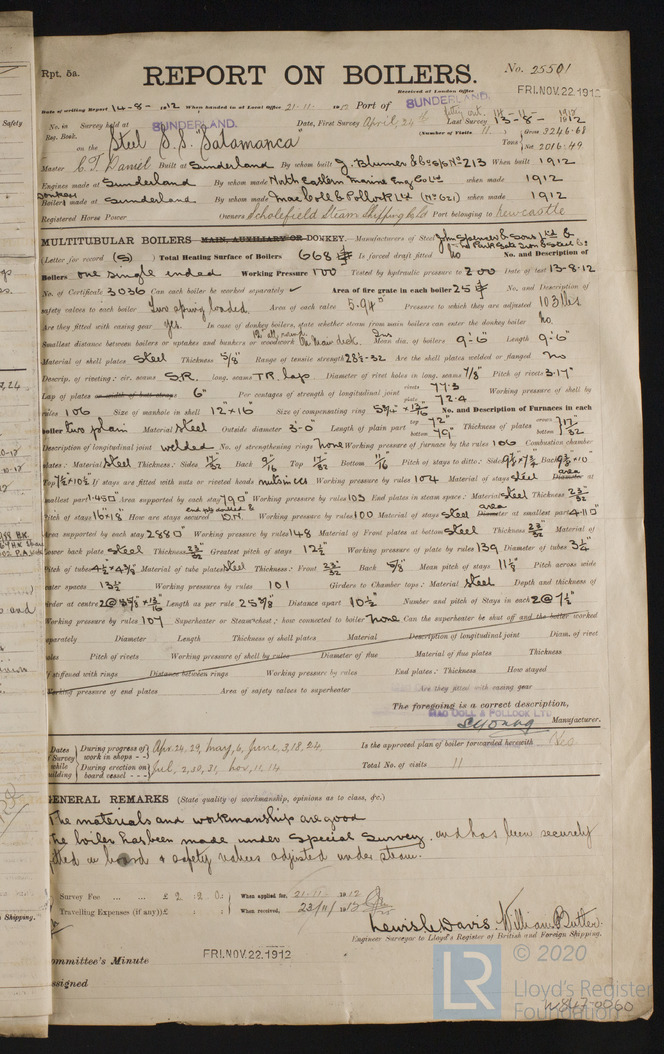 Rpt. 5a.
REPORT ON BOILERS.
No. 25501
Received at London Office FRI. NOV. 22. 1912
Date of writing Report 14-8-1912 When handed in at Local Office 21-11-1912 Port of SUNDERLAND.
No. in Reg. Book. Survey held at SUNDERLAND. Date, First Survey April 24th Last Survey 13-8-1912
(Number of Visits 11)
on the Steel S.S. "Salamanca" Tons Gross 3246.68 Net 2016.49
Master C. T. Daniel Built at Sunderland By whom built J. Blumer & Co S/S No 213 When built 1912
Engines made at Sunderland By whom made North Eastern Marine Eng Co Ltd when made 1912
Boilers made at Sunderland By whom made MacColl & Pollock Ltd (No 621) when made 1912
Registered Horse Power Owners Scholefield Steam Shipping Co Ld Port belonging to Newcastle
MULTITUBULAR BOILERS MAIN, AUXILIARY OR DONKEY.—Manufacturers of Steel John Spencer & Sons Ltd &
(Letter for record (S)) Total Heating Surface of Boilers 668 Is forced draft fitted No No. and Description of
Boilers one single ended Working Pressure 100 Tested by hydraulic pressure to 200 Date of test 13-8-12
No. of Certificate 3036 Can each boiler be worked separately ✓ Area of fire grate in each boiler 25 No. and Description of
safety valves to each boiler Two spring loaded Area of each valve 5.94 Pressure to which they are adjusted 103 lbs
Are they fitted with easing gear Yes. In case of donkey boilers, state whether steam from main boilers can enter the donkey boiler No.
Smallest distance between boilers or uptakes and bunkers or woodwork On Main deck. Mean dia. of boilers 9'-6" Length 9'-6"
Material of shell plates Steel Thickness 5/8" Range of tensile strength 28½-32 Are the shell plates welded or flanged No
Descrip. of riveting: cir. seams S.R. long. seams T.R. lap Diameter of rivet holes in long. seams 7/8" Pitch of rivets 3.17"
Lap of plates or width of butt straps 6" Per centages of strength of longitudinal joint rivets 77.3 plate 72.4 Working pressure of shell by
rules 106 Size of manhole in shell 12" x 16" Size of compensating ring No. and Description of Furnaces in each
boiler two plain Material Steel Outside diameter 3'-0" Length of plain part top 72" bottom 79" Thickness of plates crown bottom 17/32
Description of longitudinal joint welded No. of strengthening rings None Working pressure of furnace by the rules 106 Combustion chamber
plates: Material Steel Thickness: Sides 17/32 Back 9/16 Top 17/32 Bottom 11/16 Pitch of stays to ditto: Sides Back
Top If stays are fitted with nuts or riveted heads nuts Working pressure by rules 104 Material of stays Steel area Diameter at
smallest part 1.450 Area supported by each stay 79 Working pressure by rules 103 End plates in steam space: Material Steel Thickness 23/32
Pitch of stays 16" x 18" How are stays secured D.N. Working pressure by rules 100 Material of stays Steel area Diameter at smallest part 4.11
Area supported by each stay 288 Working pressure by rules 148 Material of Front plates at bottom Steel Thickness 23/32 Material of
Lower back plate Steel Thickness 23/32 Greatest pitch of stays 12½ Working pressure of plate by rules 139 Diameter of tubes 3¼"
Pitch of tubes 4½ x 4⅜ Material of tube plates Steel Thickness: Front 23/32 Back 5/8" Mean pitch of stays 11½ Pitch across wide
water spaces 13½ Working pressures by rules 101 Girders to Chamber tops: Material Steel Depth and thickness of
girder at centre Length as per rule 25 3/8 Distance apart 10½" Number and pitch of Stays in each 2 @ 7½"
Working pressure by rules 107 Superheater or Steam chest; how connected to boiler None Can the superheater be shut off and the boiler worked
separately Diameter Length Thickness of shell plates Material Description of longitudinal joint Diam. of rivet
holes Pitch of rivets Working pressure of shell by rules Diameter of flue Material of flue plates Thickness
If stiffened with rings Distance between rings Working pressure by rules End plates: Thickness How stayed
Working pressure of end plates Area of safety valves to superheater Are they fitted with easing gear
The foregoing is a correct description,
MAC COLL & POLLOCK LTD
S. Young Manufacturer.
Dates of Survey while building During progress of work in shops - - Apr. 24, 29, May, 6, June, 3, 18, 24 Is the approved plan of boiler forwarded herewith
During erection on board vessel - - - Jul, 2, 30, 31, Nov, 11, 14 Total No. of visits 11
GENERAL REMARKS (State quality of workmanship, opinions as to class, &c.)
The materials and workmanship are good
The boiler has been made under Special Survey, and has been securely
fitted on board & safety valves adjusted under steam.
Survey Fee ... ... £ 2 : 2 : 0 : When applied for, 21-11-1912
Travelling Expenses (if any) £ : : When received, 23/11/1912
Lewis L. Davis. William Butler
Engineer Surveyor to Lloyd's Register of British and Foreign Shipping.
Committee's Minute FRI. NOV. 22. 1912
Assigned
LR © 2020
Lloyd's Register
Foundation
W847-0060